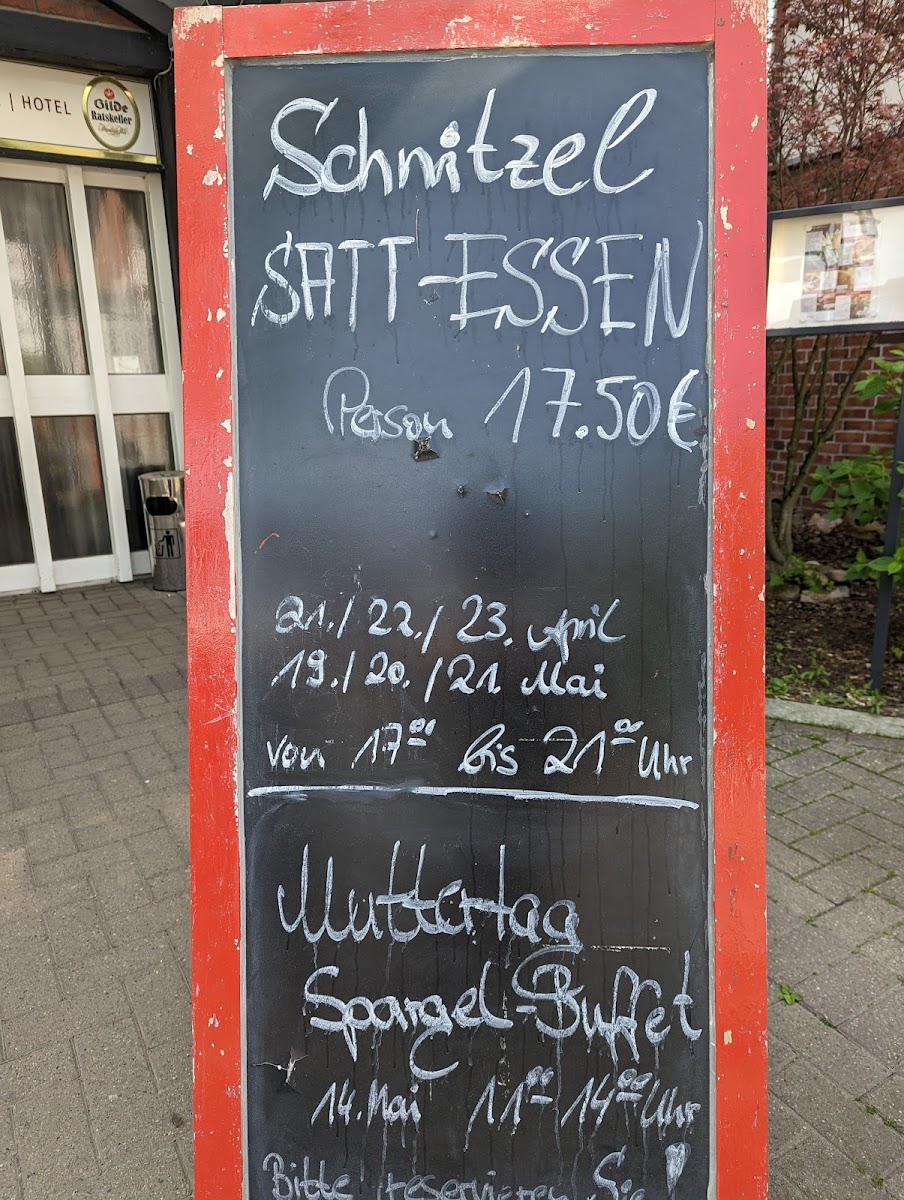 | HOTEL
Gilde
Ratskeller
Schnitzel
SATT-ESSEN
Person 17.50€
21./22./23. April
19./20./21. Mai
von 17⁰⁰ bis 21⁰⁰ Uhr
Muttertag
Spargel-Buffet
14. Mai 11⁰⁰-14⁰⁰ Uhr
Bitte reservieren Sie!